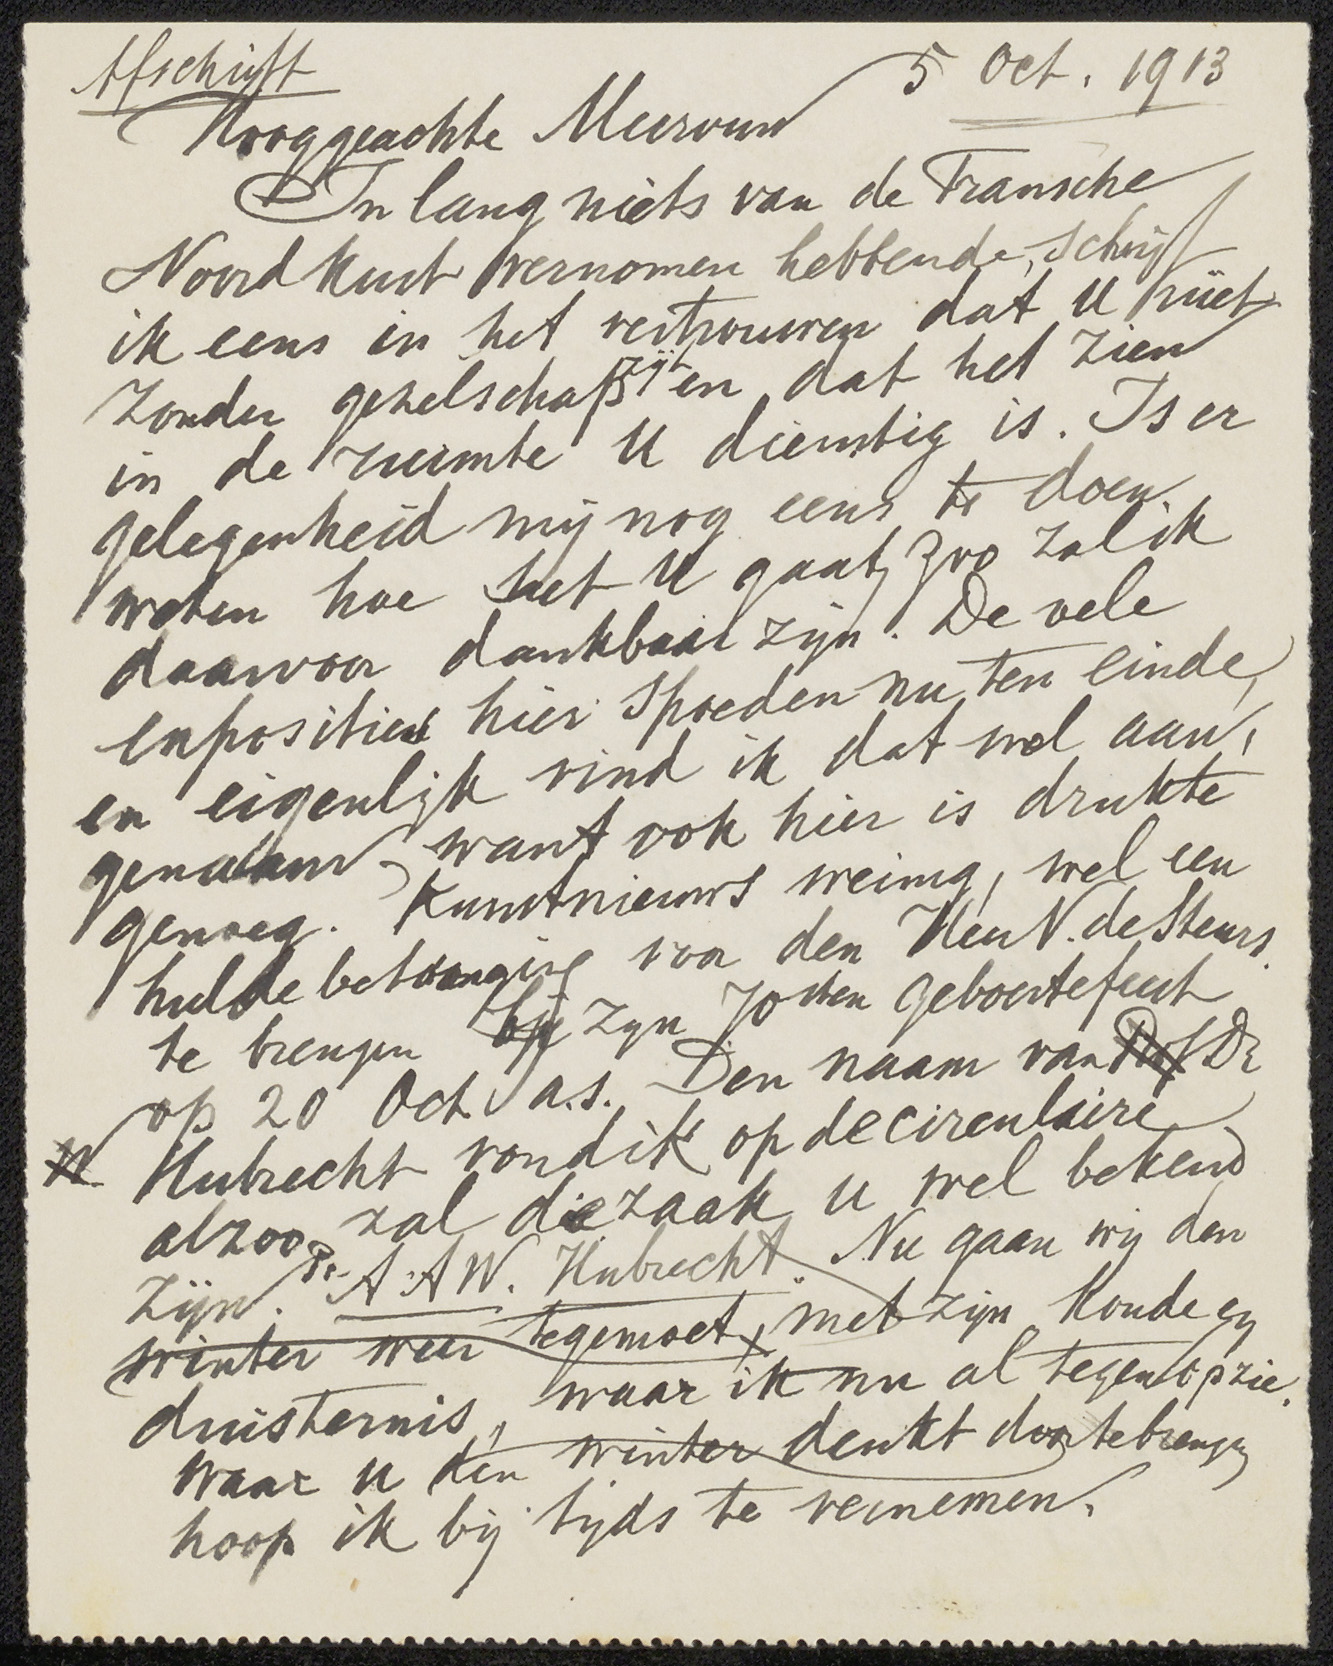 Afschrift
5 Oct. 1913
Hooggeachte Mevrouw
In lang niets van de Fransche
Noordkust vernomen hebbende, schrijf
ik eens in het vertrouwen dat U niet
zonder gezelschap zijt en dat het zien
in de ruimte U dienstig is. Is er
gelegenheid mij nog eens te doen
weten hoe het U gaat, zoo zal ik
daarvoor dankbaar zijn. De vele
exposities hier spoeden nu ten einde,
en eigenlijk vind ik dat wel aan,
genaam, want ook hier is drukte
genoeg. Kunstnieuws weinig, wel een
hulde betuiging voor den Heer V. de Steurs
te brengen bij zijn 70sten geboortefeest
op 20 Oct a.s. Den naam van Prof Dr
Hubrecht vond ik op de circulaire
alzoo zal die zaak u wel bekend
zijn. Dr. A.A.W. Hubrecht. Nu gaan wij den
winter weer tegemoet, met zijn koude en
duisternis, waar ik nu al tegen opzie.
Waar u den winter denkt door te brengen
hoop ik bij tijds te vernemen.